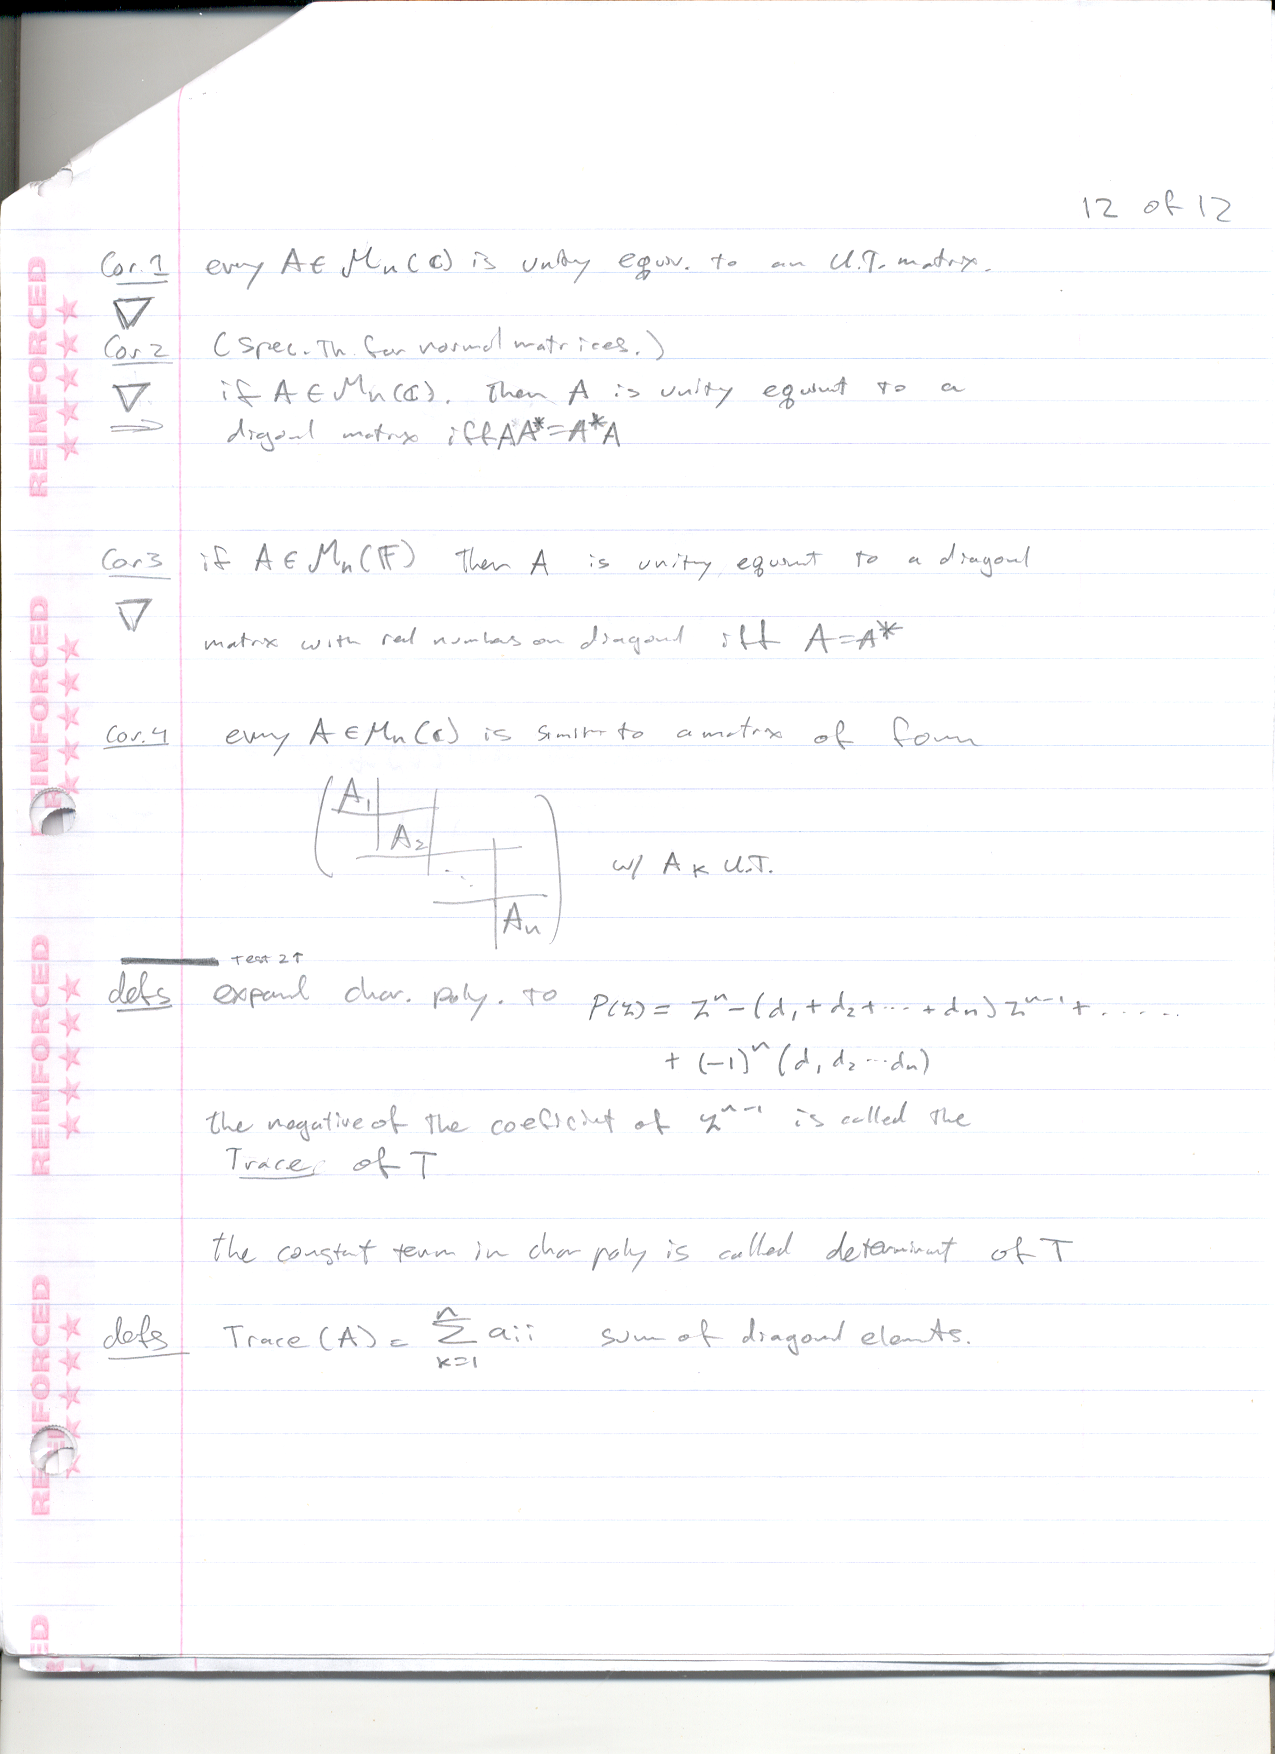 12 of 12
Cor. 1 every A ∈ Mn(ℂ) is unitry equiv. to an U.T. matrix.
▽
Cor 2 (Spec. Th. for normal matrices.)
▽ if A ∈ Mn(ℂ). Then A is unitry equivnt to a
⇒ diagonal matrix iff AA* = A*A
Cor 3 if A ∈ Mn(𝔽) then A is unitry equivnt to a diagonal
▽
matrix with real numbers on diagonal iff A = A*
Cor. 4 every A ∈ Mn(ℂ) is similar to a matrix of form
A₁
A₂
w/ Aₖ U.T.
⋱
Aₙ
Test 2↑
defs expand char. poly. to P(z) = zⁿ − (d₁ + d₂ + ··· + dₙ) zⁿ⁻¹ + ......
+ (−1)ⁿ (d₁ d₂ ··· dₙ)
the negative of the coeficint of zⁿ⁻¹ is called the
Trace of T
the constant term in char poly is called determinant of T
defs Trace (A) = n Σ k=1 aii sum of diagonal elemnts.
REINFORCED
REINFORCED
REINFORCED
REINFORCED
ED